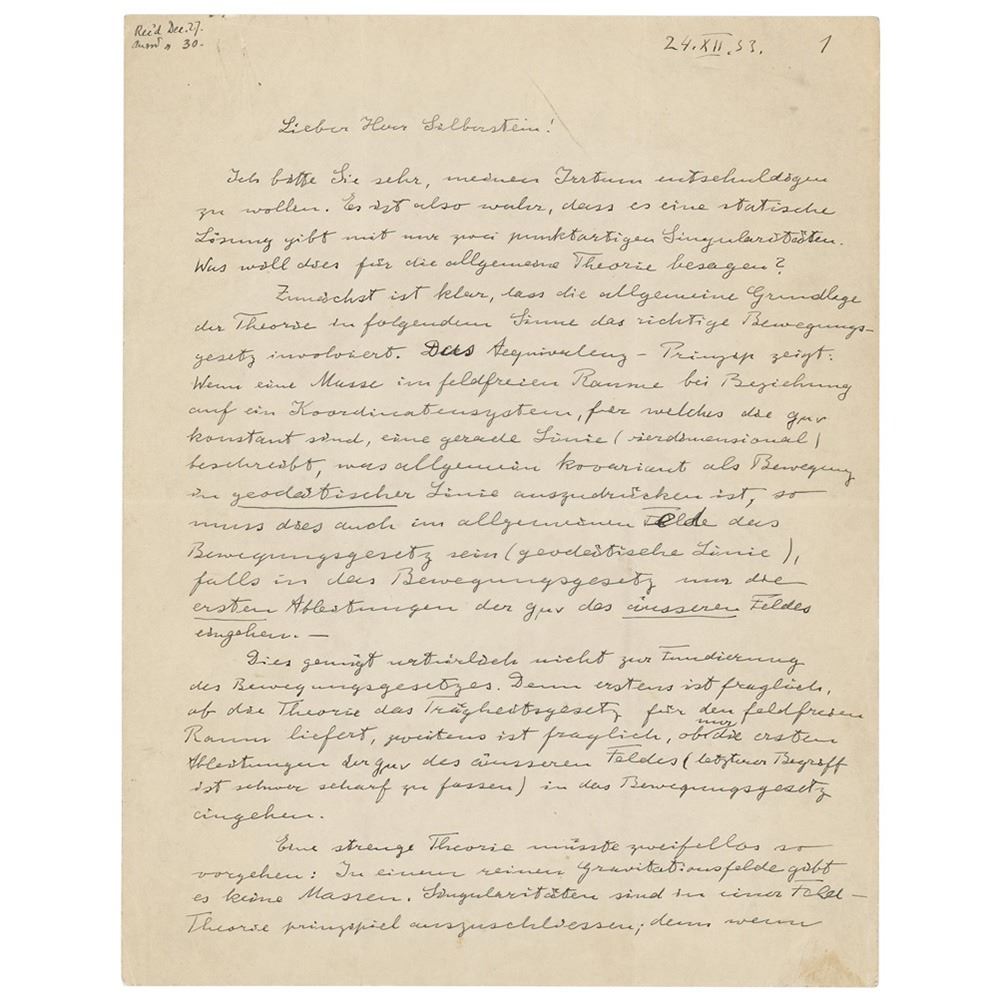 Rec'd Dec. 27.
30.
24.XII.33. 1
Lieber Herr Silberstein!
Ich bitte Sie sehr, meinen Irrtum entschuldigen
zu wollen. Es ist also wahr, dass es eine statische
Lösung gibt mit nur zwei punktartigen Singularitäten.
Was will dies für die allgemeine Theorie besagen?
Zunächst ist klar, dass die allgemeine Grundlage
der Theorie in folgendem Sinne das richtige Bewegungs-
gesetz involviert. Das Aequivalenz-Prinzip zeigt:
Wenn eine Masse im feldfreien Raume bei Beziehung
auf ein Koordinatensystem, für welches die gμν
konstant sind, eine gerade Linie (vierdimensional)
beschreibt, was allgemein kovariant als Bewegung
in geodätischer Linie auszudrücken ist, so
muss dies auch im allgemeinen Felde das
Bewegungsgesetz sein (geodätische Linie),
falls in das Bewegungsgesetz nur die
ersten Ableitungen der gμν des äusseren Feldes
eingehen. —
Dies genügt natürlich nicht zur Fundierung
des Bewegungsgesetzes. Denn erstens ist fraglich,
ob die Theorie das Trägheitsgesetz für den feldfreien
Raum liefert, zweitens ist fraglich, ob nur die ersten
Ableitungen der gμν des äusseren Feldes (letzterer Begriff
ist schwer scharf zu fassen) in das Bewegungsgesetz
eingehen.
Eine strenge Theorie müsste zweifellos so
vorgehen: In einem reinen Gravitationsfelde gibt
es keine Massen. Singularitäten sind in einer Feld-
Theorie prinzipiel auszuschliessen; denn wenn